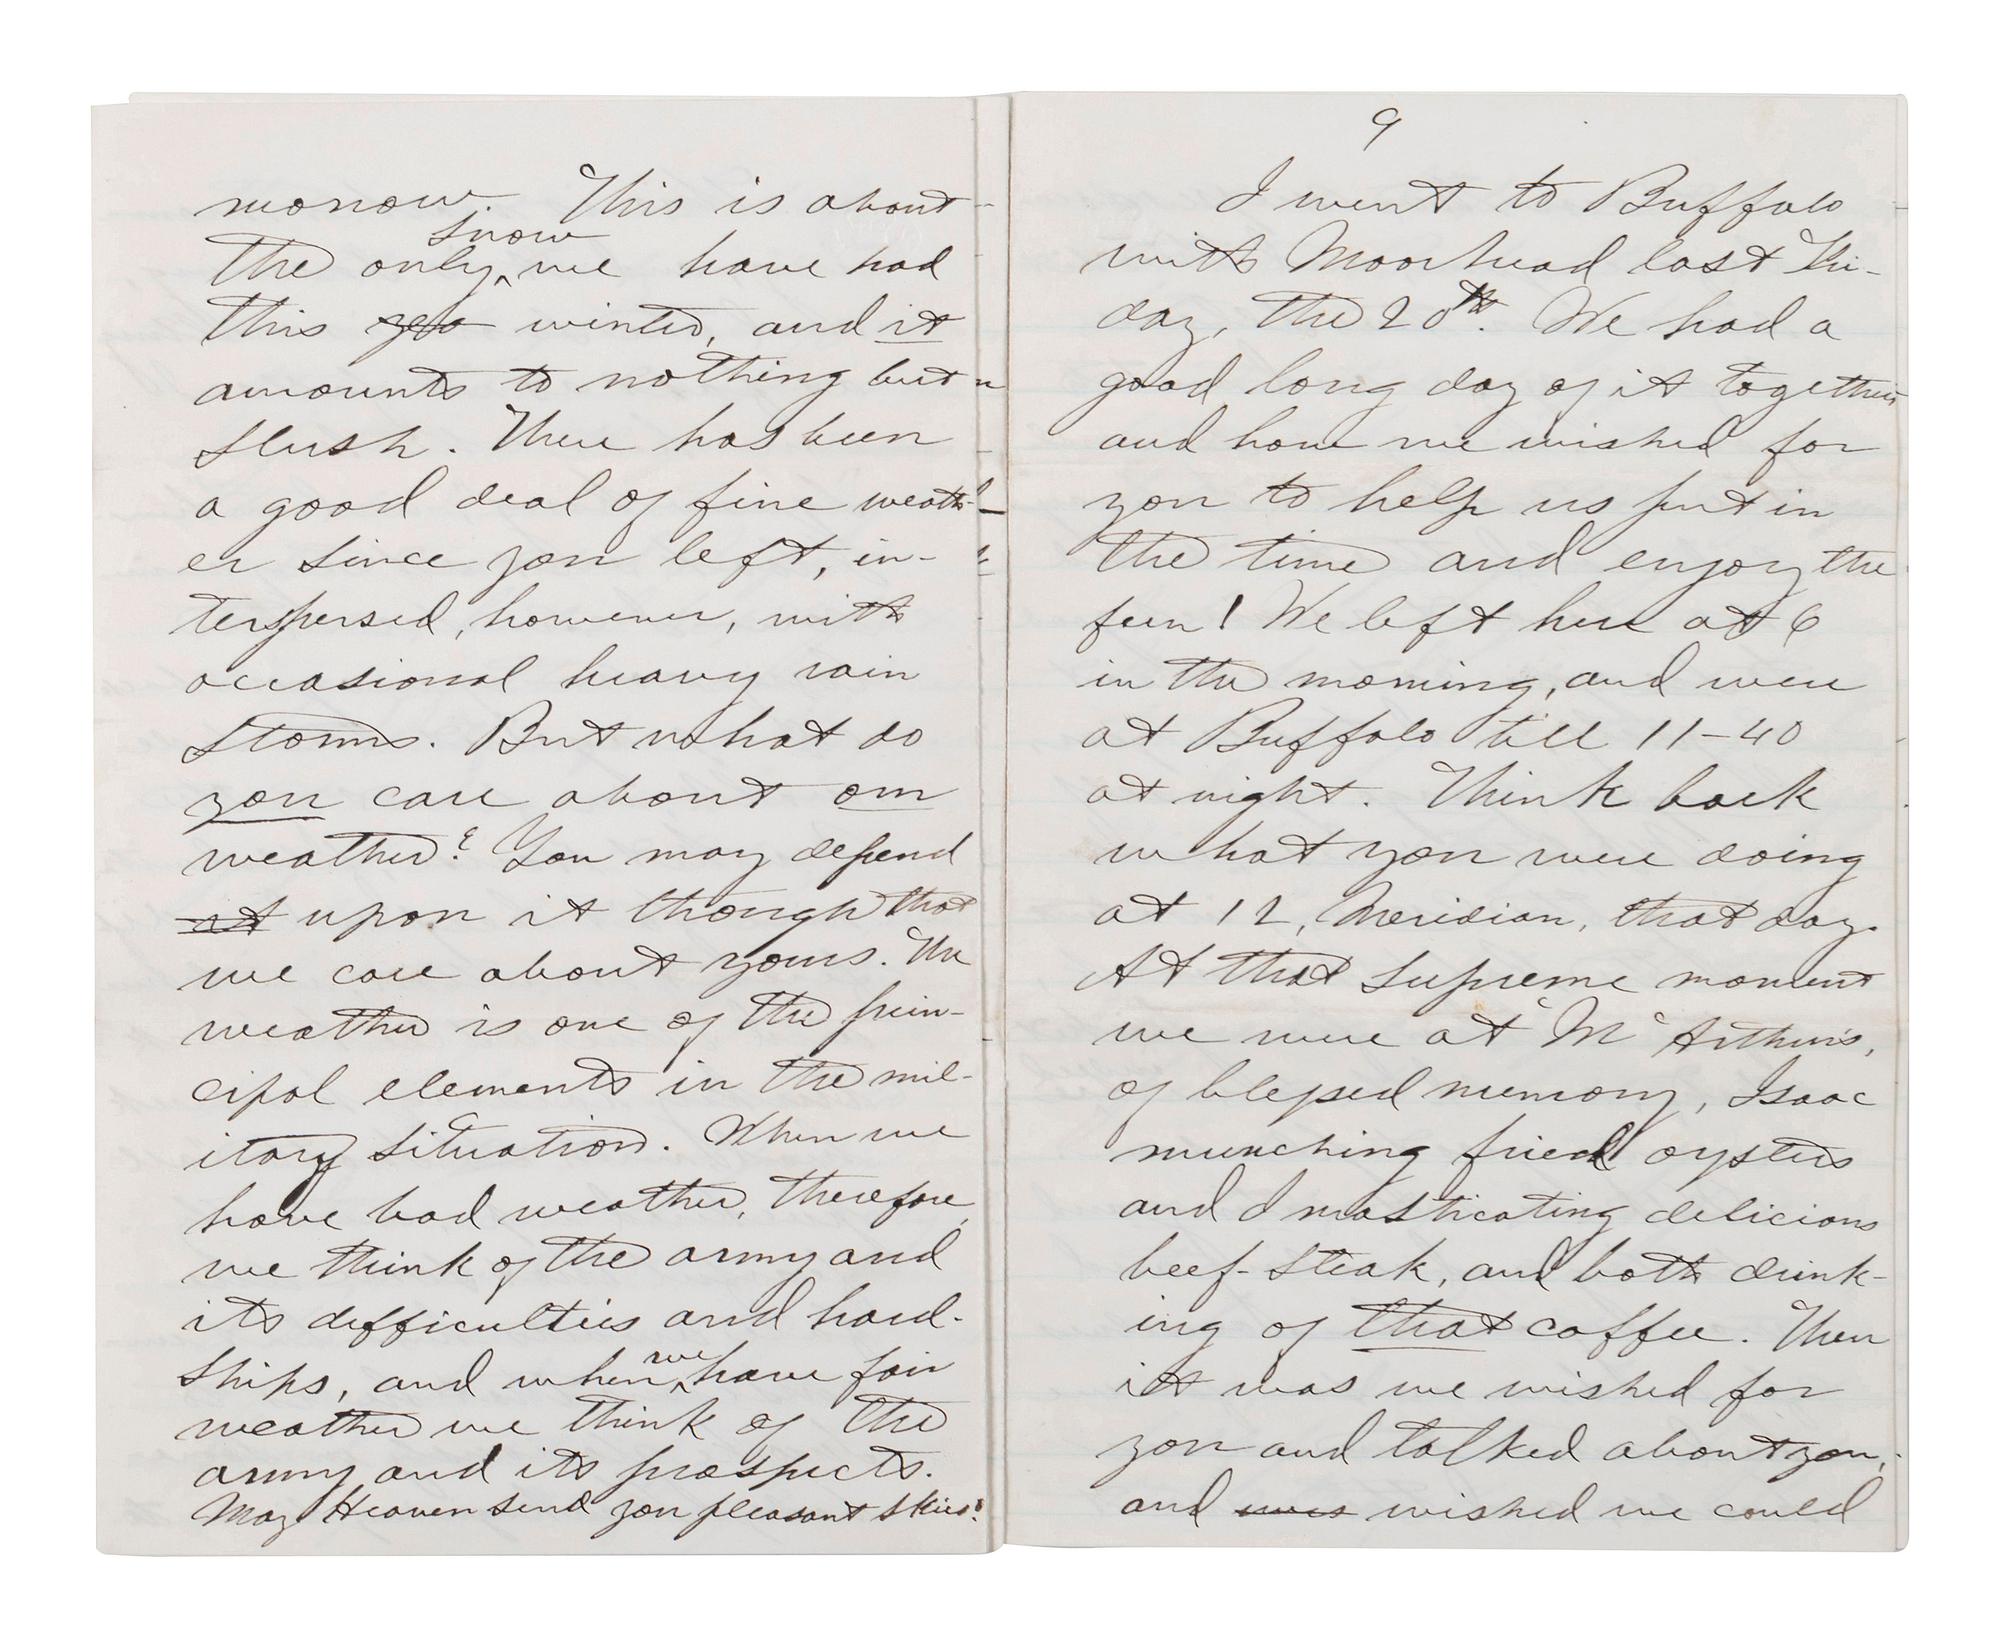 morrow. This is about
snow
the only ^ we have had
this yea winter, and it
amounts to nothing but
slush. There has been
a good deal of fine weath-
er since you left, in-
terspersed, however, with
occasional heavy rain
storms. But what do
you care about our
weather? You may depend
it upon it though that
we care about yours. The
weather is one of the prin-
cipal elements in the mil-
itary situation. When we
have bad weather, therefore,
we think of the army and
its difficulties and hard-
ships, and when ^we have fair
weather we think of the
army and its prospects.
May Heaven send you pleasant skies!
9
I went to Buffalo
with Moorhead last Fri-
day, the 20th. We had a
good long day of it together
and how we wished for
you to help us put in
the time and enjoy the
fun! We left here at 6
in the morning, and were
at Buffalo till 11-40
at night. Think back
what you were doing
at 12, Meridian, that day.
At that supreme moment
we were at McArthur's,
of blessed memory, Isaac
munching fried oysters
and I masticating delicious
beef-steak, and both drink-
ing of that coffee. Then
it was we wished for
you and talked about you,
and wished we could